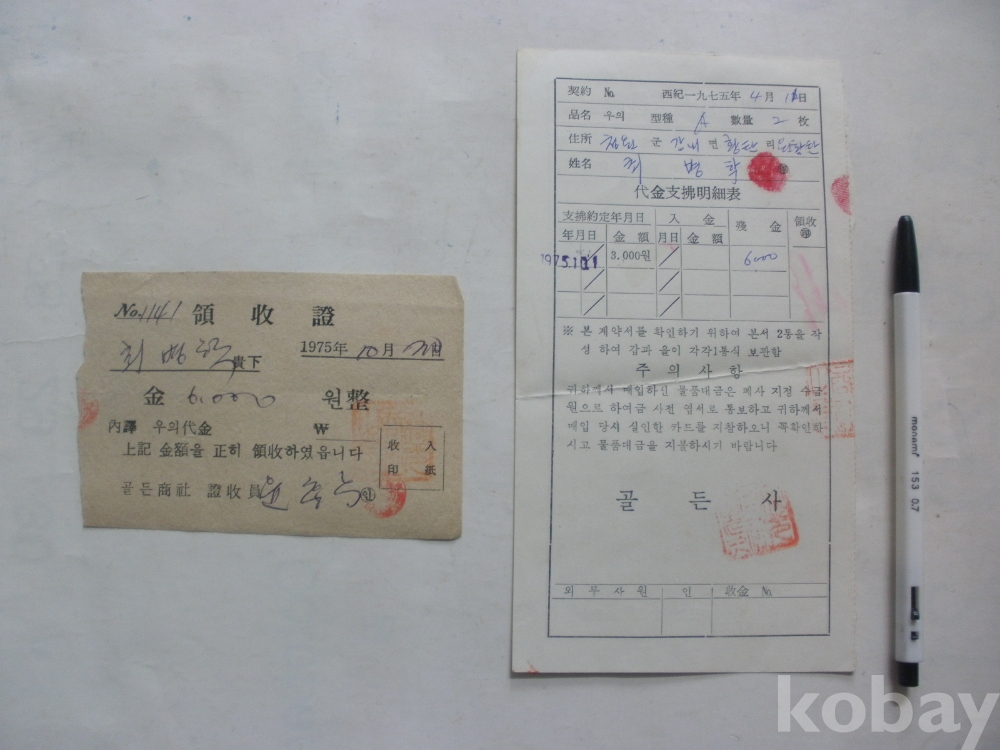 No. 1141 領收證
최병학 貴下
1975年 10月 日
金 6,000 원整
內譯 우의代金 ₩
上記 金額을 正히 領收하였읍니다
골든商社 證收員 윤
收入
印紙
契約 No. 西紀一九七五年 4月 日
品名 우의 型種 A 數量 2 枚
住所 군 면 황탄 리
姓名 최병학
代金支拂明細表
支拂約定年月日 入金 殘金 領收 ㊞
年月日 金額 月日 金額
1975.10.1 3.000원 6,000
※ 본 계약서를 확인하기 위하여 본서 2통을 작
성 하여 갑과 을이 각각1통식 보관함
주의사항
귀하께서 매입하신 물품대금은 폐사 지정 수금
원으로 하여금 사전 엽서로 통보하고 귀하께서
매입 당시 실인한 카드를 지참하오니 꼭확인하
시고 물품대금을 지불하시기 바랍니다
골든사
외무사원 인 收金 No.
monami 153 0.7
kobay